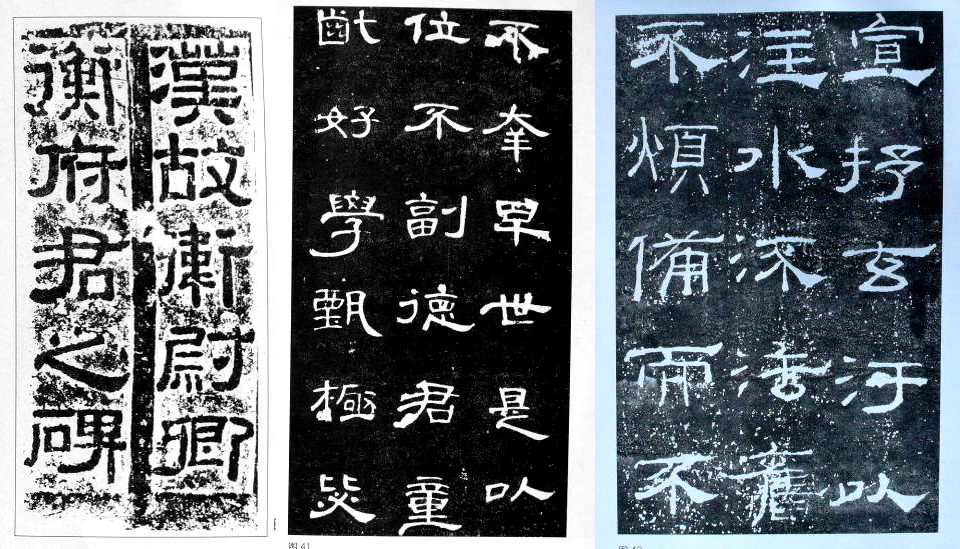 漢故衛尉卿
衡府君之碑
不幸早世是以
位不副德君童
齔好學甄極毖
图 41
宣抒玄汙以
注水流法舊
不煩備而不